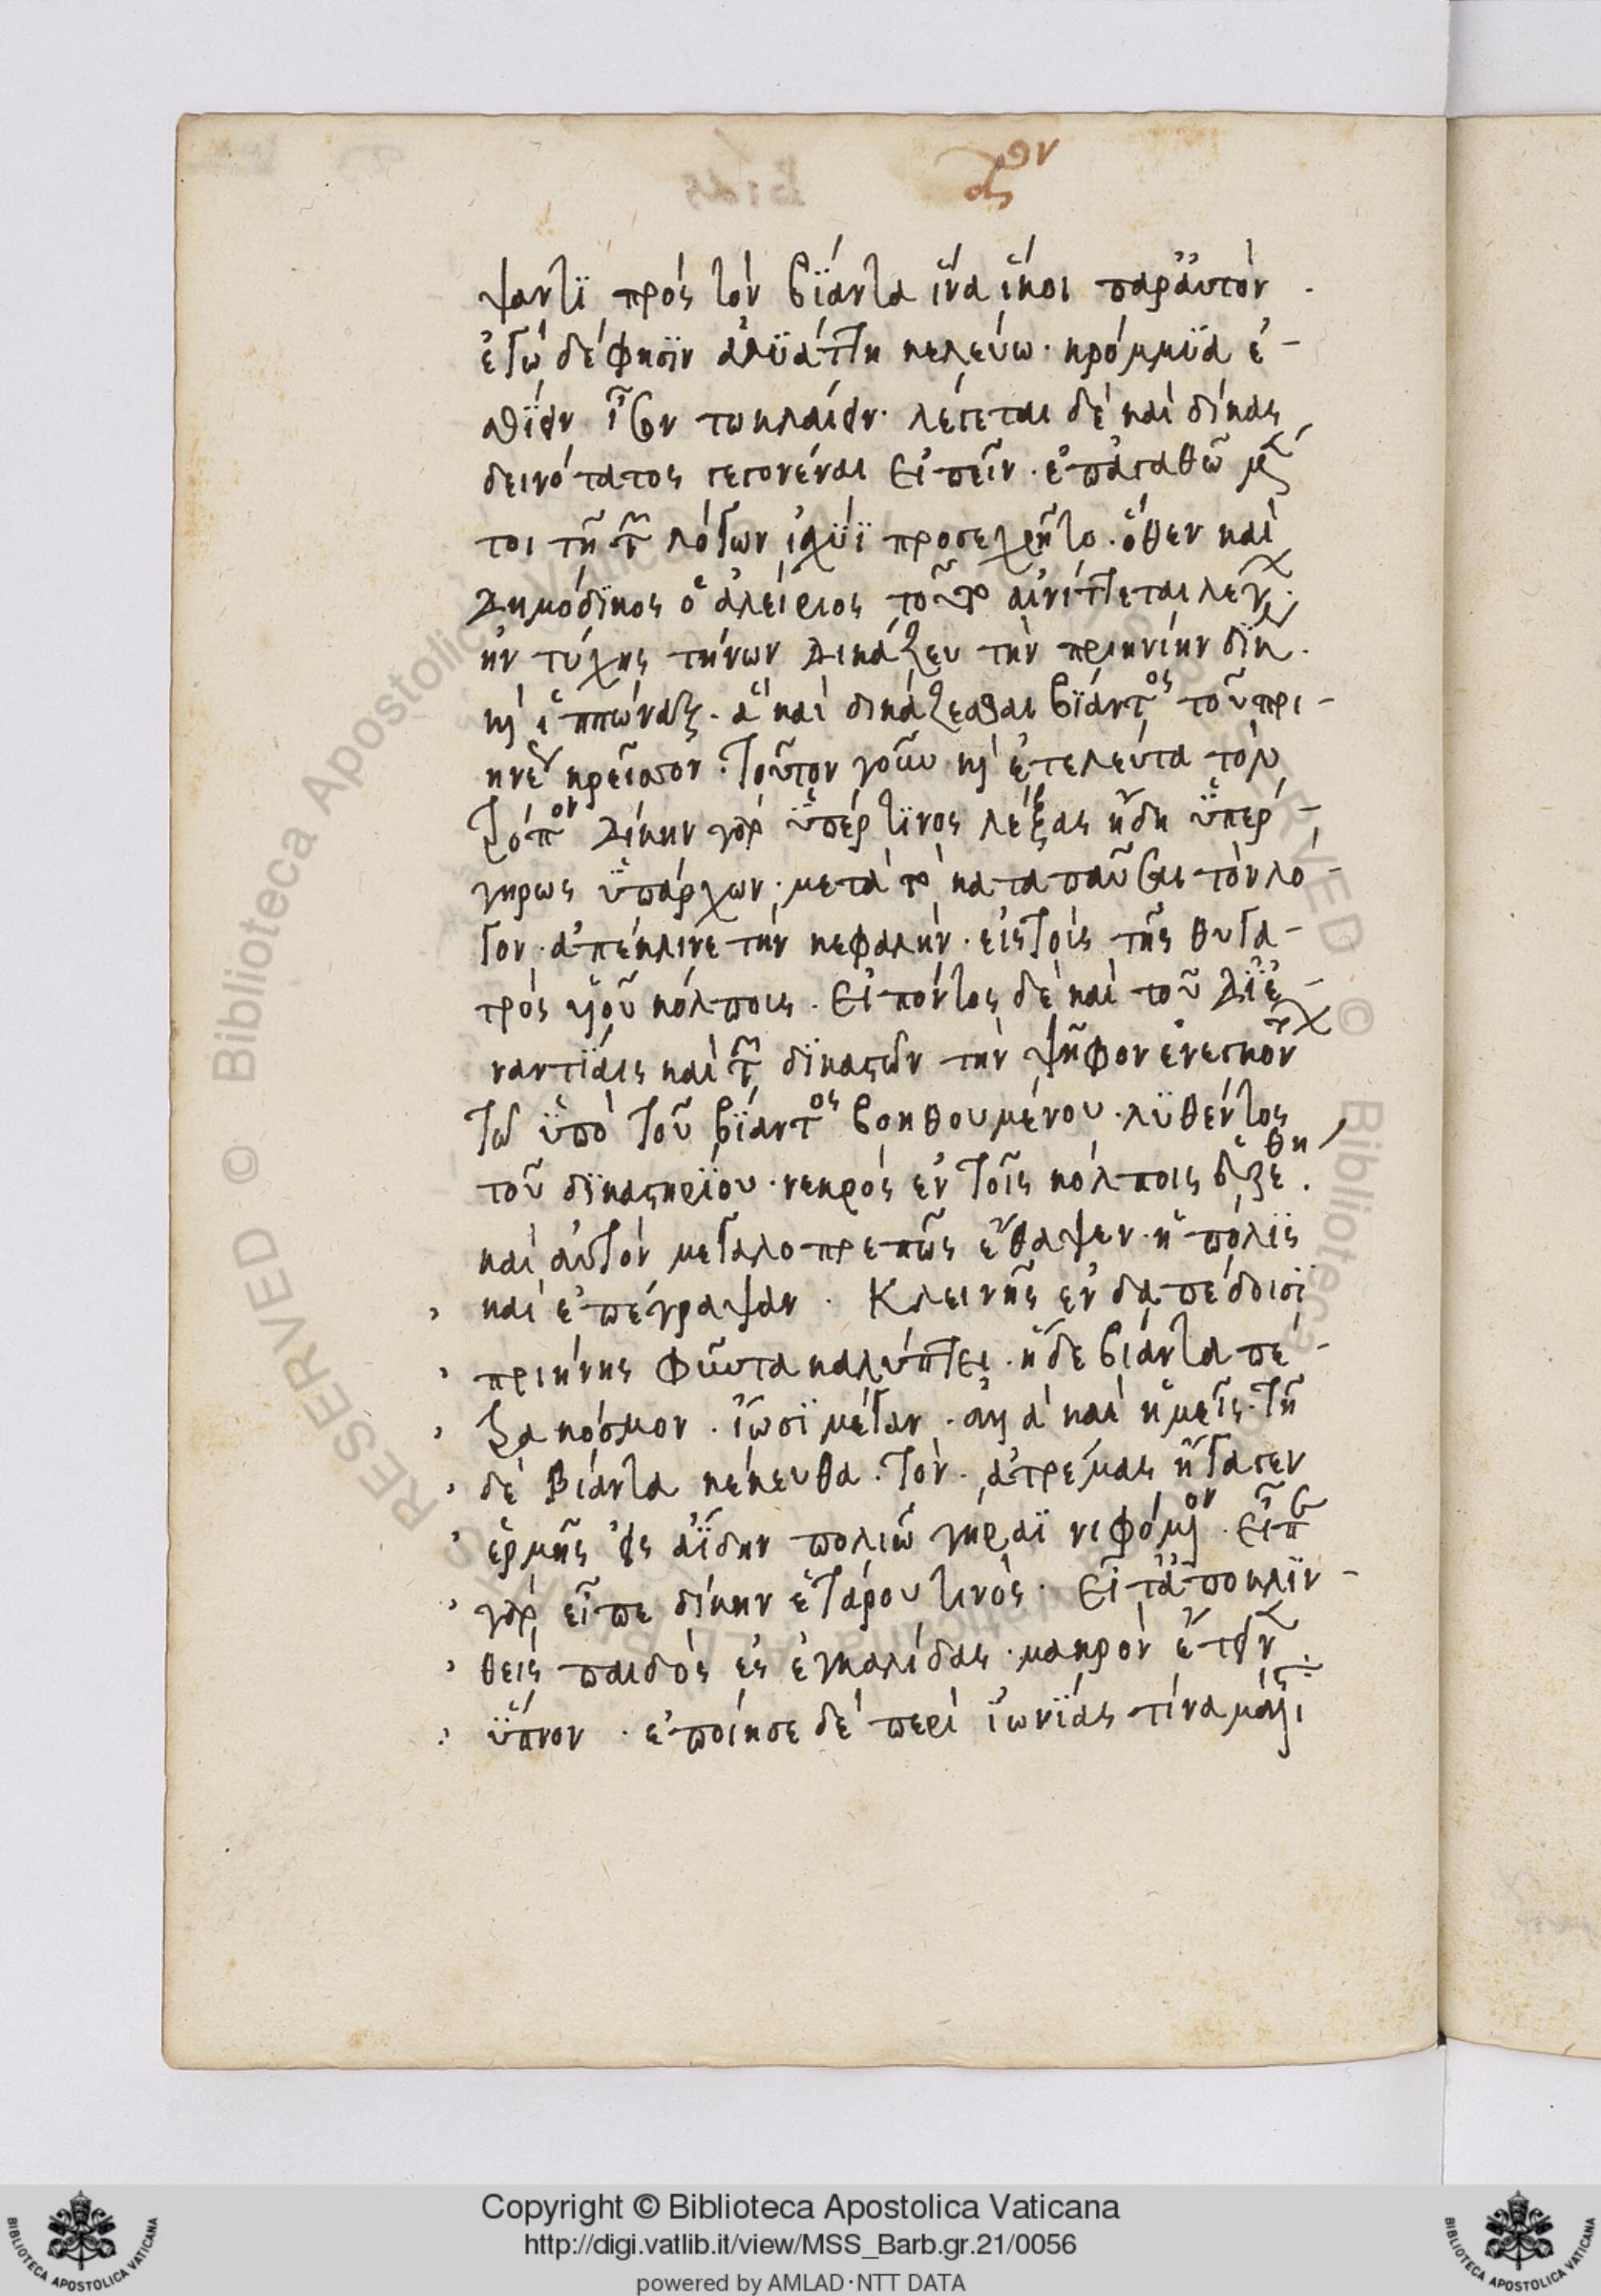 ψαντϊ πρὸς τὸν βϊάντα ἵνα ἥκοι παρἀυτὸν .
ἐγὼ δέ φησϊν ἀλϋάττη κελεύω · κρόμμϋα ἐ-
σθίειν ἶσον τω κλαίειν · λέγεται δὲ καὶ δίκας
δεινότατος γεγονέναι εἰπεῖν · ἐπ ἀγαθῶ μέν
τοι τῆ τῶν λόγων ἰσχϋϊ προσεχρῆτο · ὅθεν καὶ
Δημόδϊκος ὁ ἀλείριος τοῦτο αἰνίττεται λέγων ·
ἢν τύχης τήνων Δικάζευ τὴν πριηνίην δϊκην .
καὶ ἱππώναξ · ἃ καὶ δικάζεσθαι βϊάντος τοῦ πρι-
ηνέως κρεῖσσον · Τοῦτον γοῦν καὶ ἐτελεύτα τὸν
Τρόπον Δίκην γὰρ ὑπέρ τϊνος λέξας ἤδη ὑπερ-
γηρως ὑπάρχων · μετὰ τὸ καταπαῦσαι τὸν λό-
γον · ἀπέκλινε τὴν κεφαλὴν · εἰς τοὶς τῆς θυγα-
τρὸς υἱοῦ κόλποις · Εἰπόντος δὲ καὶ τοῦ Δϊ ἐ-
ναντϊάις καὶ τῶν δϊκαστῶν τὴν ψῆφον ἐνεγκόντων
Τῶ ὑπὸ Τοῦ βϊάντος βοηθουμένου · λϋθέντος
τοῦ δϊκαστηρϊου · νεκρὸς ἐν Τοῖς κόλποις εὑρέθη .
καὶ αὐτὸν μεγαλοπρεπῶς ἔθαψεν · ἡ πόλϊς
καὶ ἐπέγραψαν . Κλεινῆς ἐν δαπέδοισϊ
πριήνης φῦντα καλύπτει · ἥδε βιάντα πέ-
τρα κόσμον . ἴωσϊ μέγαν . ἀλλὰ καὶ ἡμεῖς · Τῆ
δὲ Βιάντα κέκευθα · Τὸν · ἀτρέμας ἤγαγεν
ἑρμῆς εἰς ἀΐδην πολιῶ γήραϊ νιφόμενον · Εἶπε
γὰρ εἶπε δίκην ἑτάρου τινὸς · Εἶτ ἀποκλϊν-
θεὶς παιδὸς ἐς ἐγκαλίδας · μακρὸν ἔτεινεν .
ὕπνον . ἐποίησε δὲ περὶ ἰωνϊάς τίνα μάλιστα